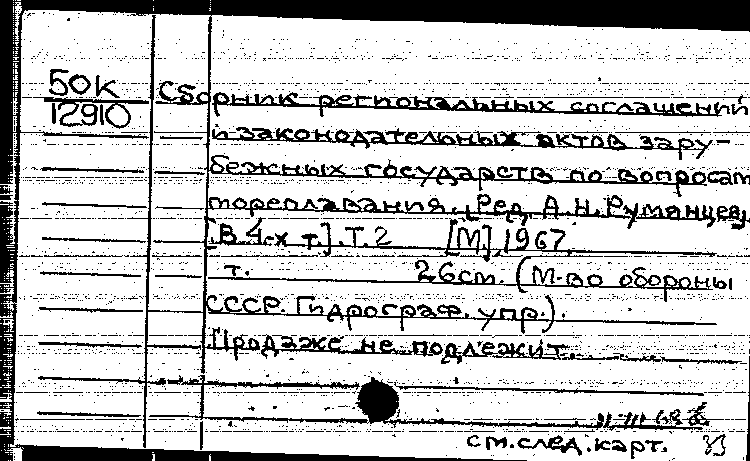 50К
12910
Сборник региональных соглашений
и законодательных актов зару-
бежных государств по вопросам
мореплавания. [Ред. А.Н.Румянцев].
[В 4-х т.]. Т.2 [М], 1967.
т. 26см. (М-во обороны
СССР. Гидрограф. упр.).
Продаже не подлежит.
см.след.карт.